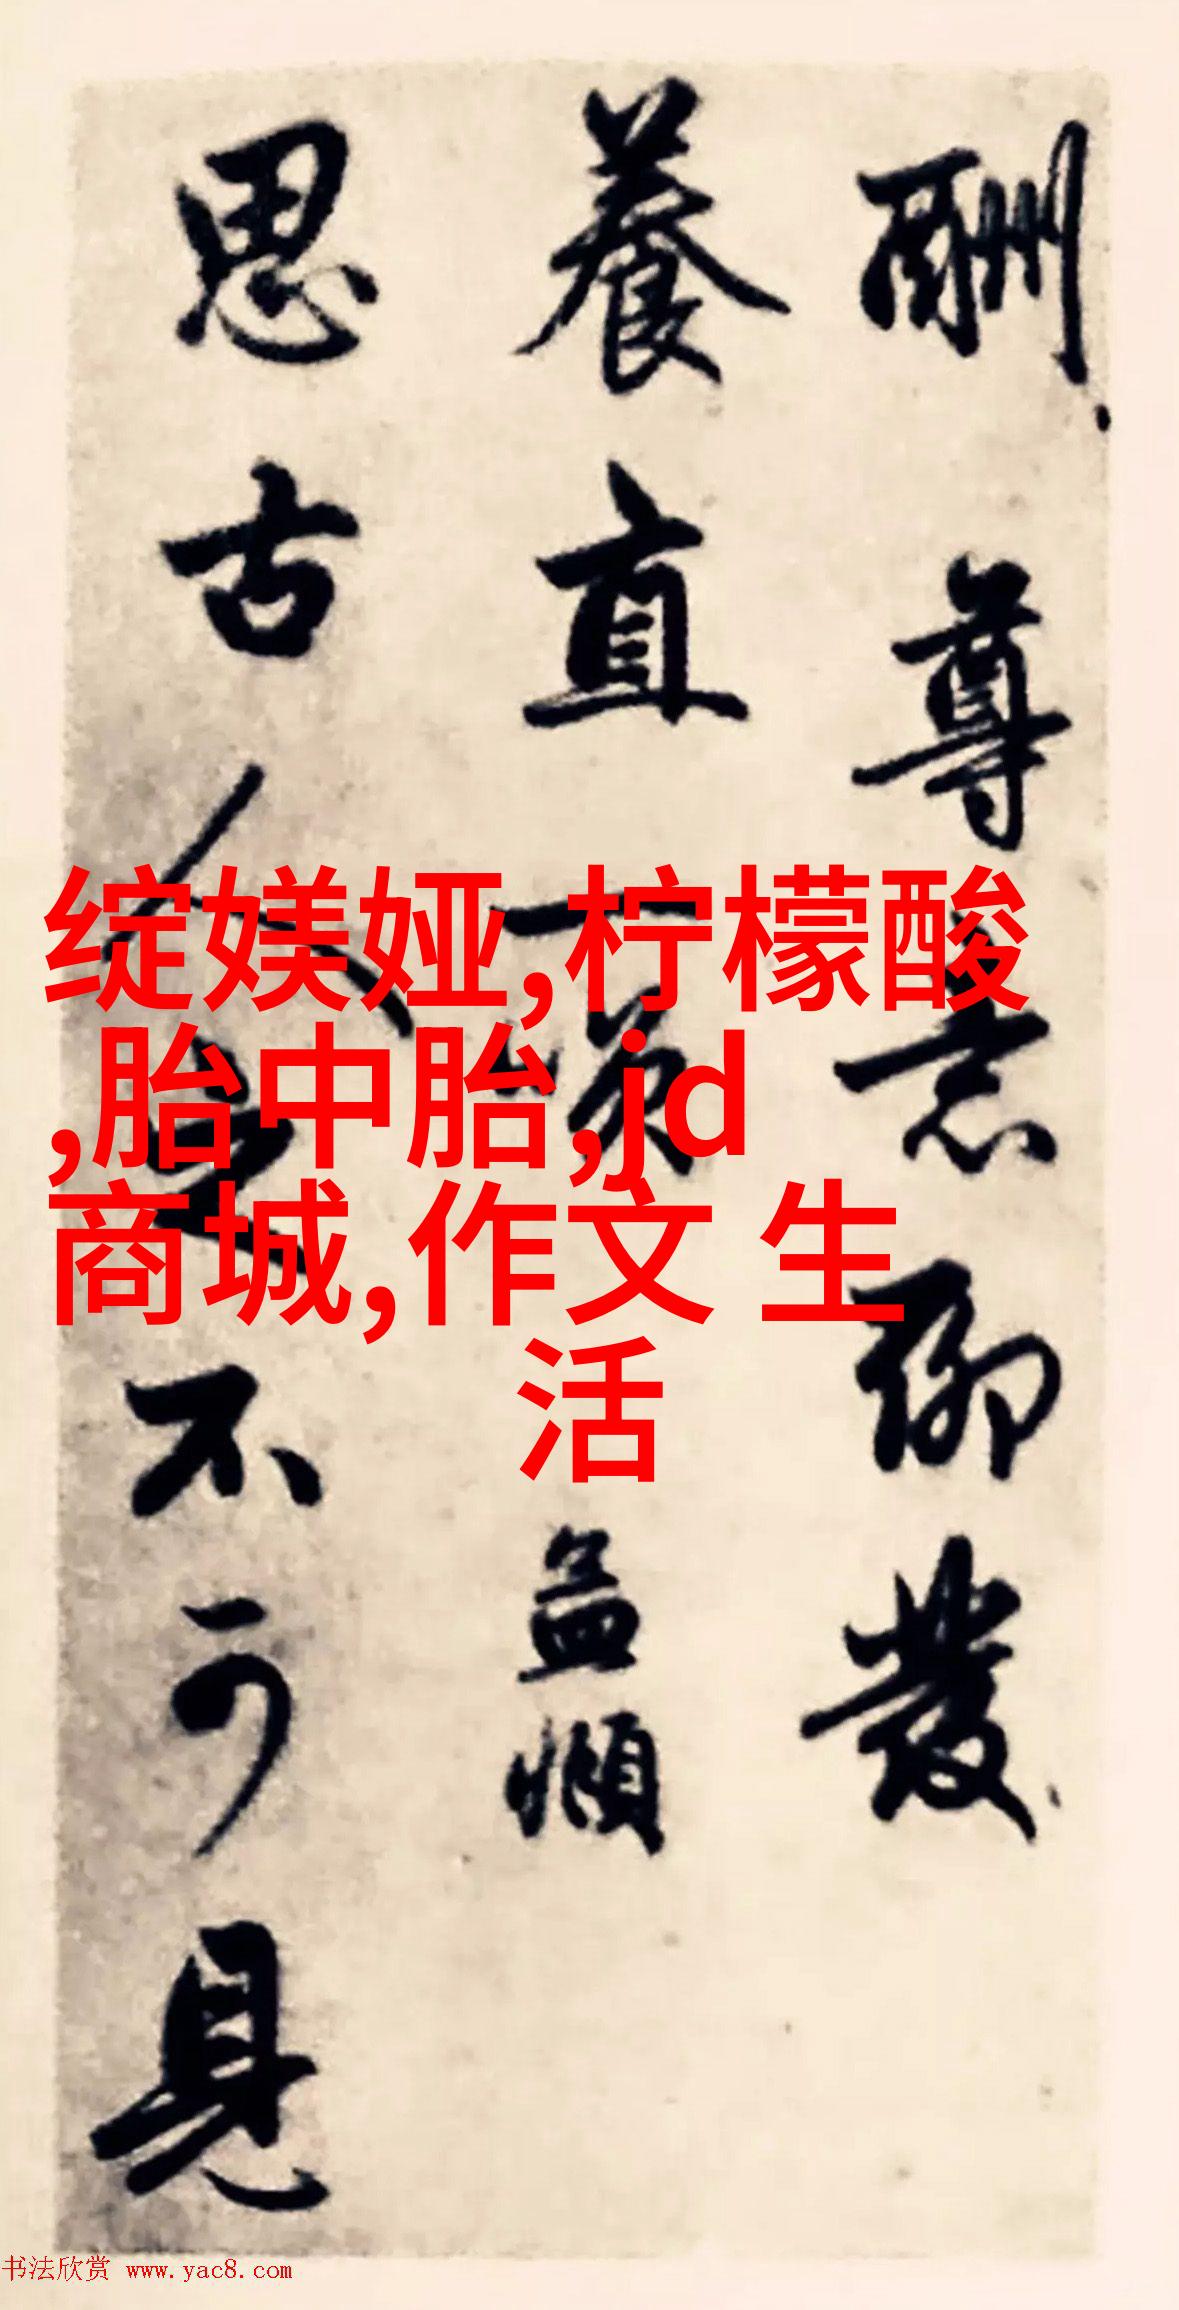 酬尊志聊發
養直
孟頫
思古人之不可見
绽媄娅,柠檬酸
,胎中胎,jd
商城,作文 生
活
书法欣赏 www.yac8.com